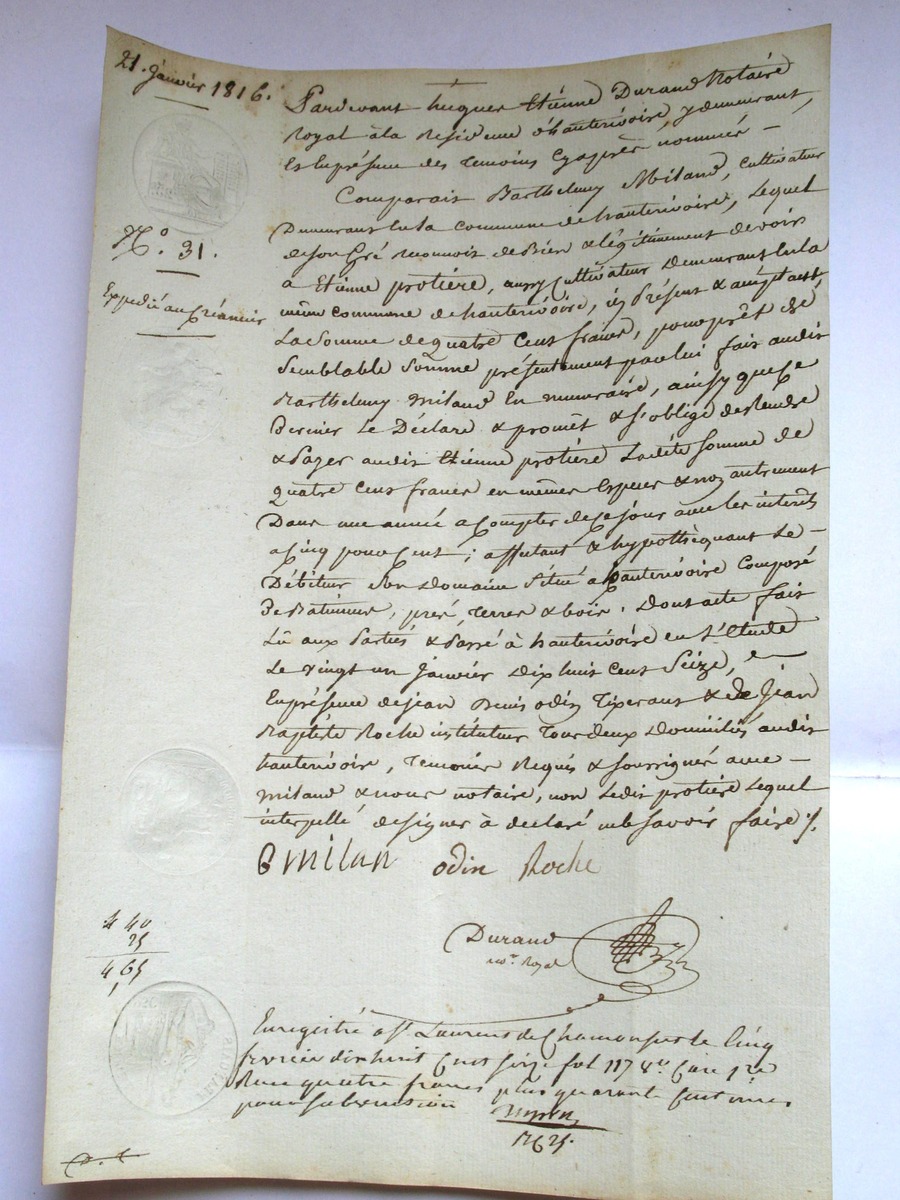 21. Janvier 1816.
N.o 31.
Expedié au Créancier
Pardevant hugues Etiénne Durand Notaire
Royal àla Residence d'hauterivoire, y demeurant,
Et En présence des temoins Cyaprés nommés —
Comparait Barthelemy Miland, Cultivateur
Demeurant En la Commune de hauterivoire, Lequel
de son Gré reconnoit de Bien & légitimement devoir
a Etiénne protiére, aussy Cultivateur Demeurant En la
même commune de hauterivoire, icy Présent & acceptant
La Somme de quatre Cent francs, pour prêt de
Semblable Somme présentement par lui fait audit
Barthelemy Miland En numeraire, ainsy que ce
Dernier Le Déclare & promêt & s'oblige de Rendre
& Payer audit Etiénne protiére Ladite Somme de
quatre Cent francs en mêmes Especes & non autrement
Dans une année a Compter de ce jour avec les intérêts
a Cinq pour Cent ; affectant & hypothéquant Le —
Débiteur Son Domaine Situé a hauterivoire Composé
De Batimens, prés, Terres & bois. Dont acte fait
Lû aux Parties & Passé à hauterivoire en L'Etude
Le vingt un Janvier Dix huit Cent Seize,
En présence de jean Denis odin Tixerant & de Jean
Baptiste Roche instituteur Tous deux Domiciliés audit
hauterivoire, Temoins Requis & soussignés avec —
Miland & nous notaire, non Ledit protiére Lequel
interpellé de signer à declaré ne le savoir faire ./.
B milan odin Roche
Durand
no.re Royal
4 40
25
4,65
Enregistré a St. Laurent de Chamousset le Cinq
fevrier dix huit Cent Seize fol 117 v.o Case 1re
Recu quatre francs plus quarante Centimes
pour Subvention